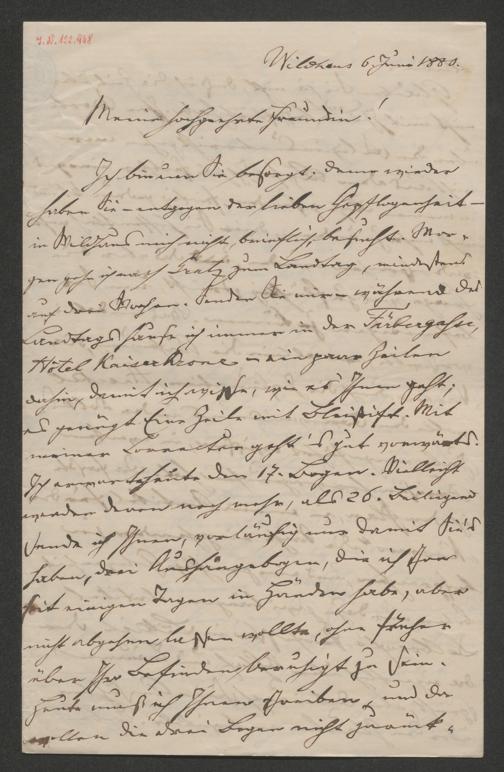 I.N. 122.948
Wildhaus 6. Juni 1880.
Meine hochgeehrte Freundin!
Ich bin um Sie besorgt; denn wieder
haben Sie – entgegen der lieben Gepflogenheit –
in Wildhaus mich nicht brieflich besucht. Mor-
gen geh' ich nach Gratz zum Landtag, mindestens
auf drei Wochen. Senden Sie mir – während des
Landtags hause ich immer in der Färbergasse,
Hôtel Kaiserkrone – ein paar Zeilen
dahin, damit ich wisse, wie es Ihnen geht;
es genügt Eine Zeile mit Bleistift. Mit
meiner Correctur geht's gut vorwärts.
Ich erwarte heute den 17. Bogen. Vielleicht
werden deren noch mehr, als 26. Beiliegend
sende ich Ihnen, vorläufig nur damit Sie's
haben, drei Aushängebogen, die ich schon
seit einigen Tagen in Händen habe, aber
nicht abgehen lassen wollte, ohne früher
über Ihr Befinden beruhigt zu sein.
Heute muß ich Ihnen schreiben, und da
wollen die drei Bogen nicht zurück-